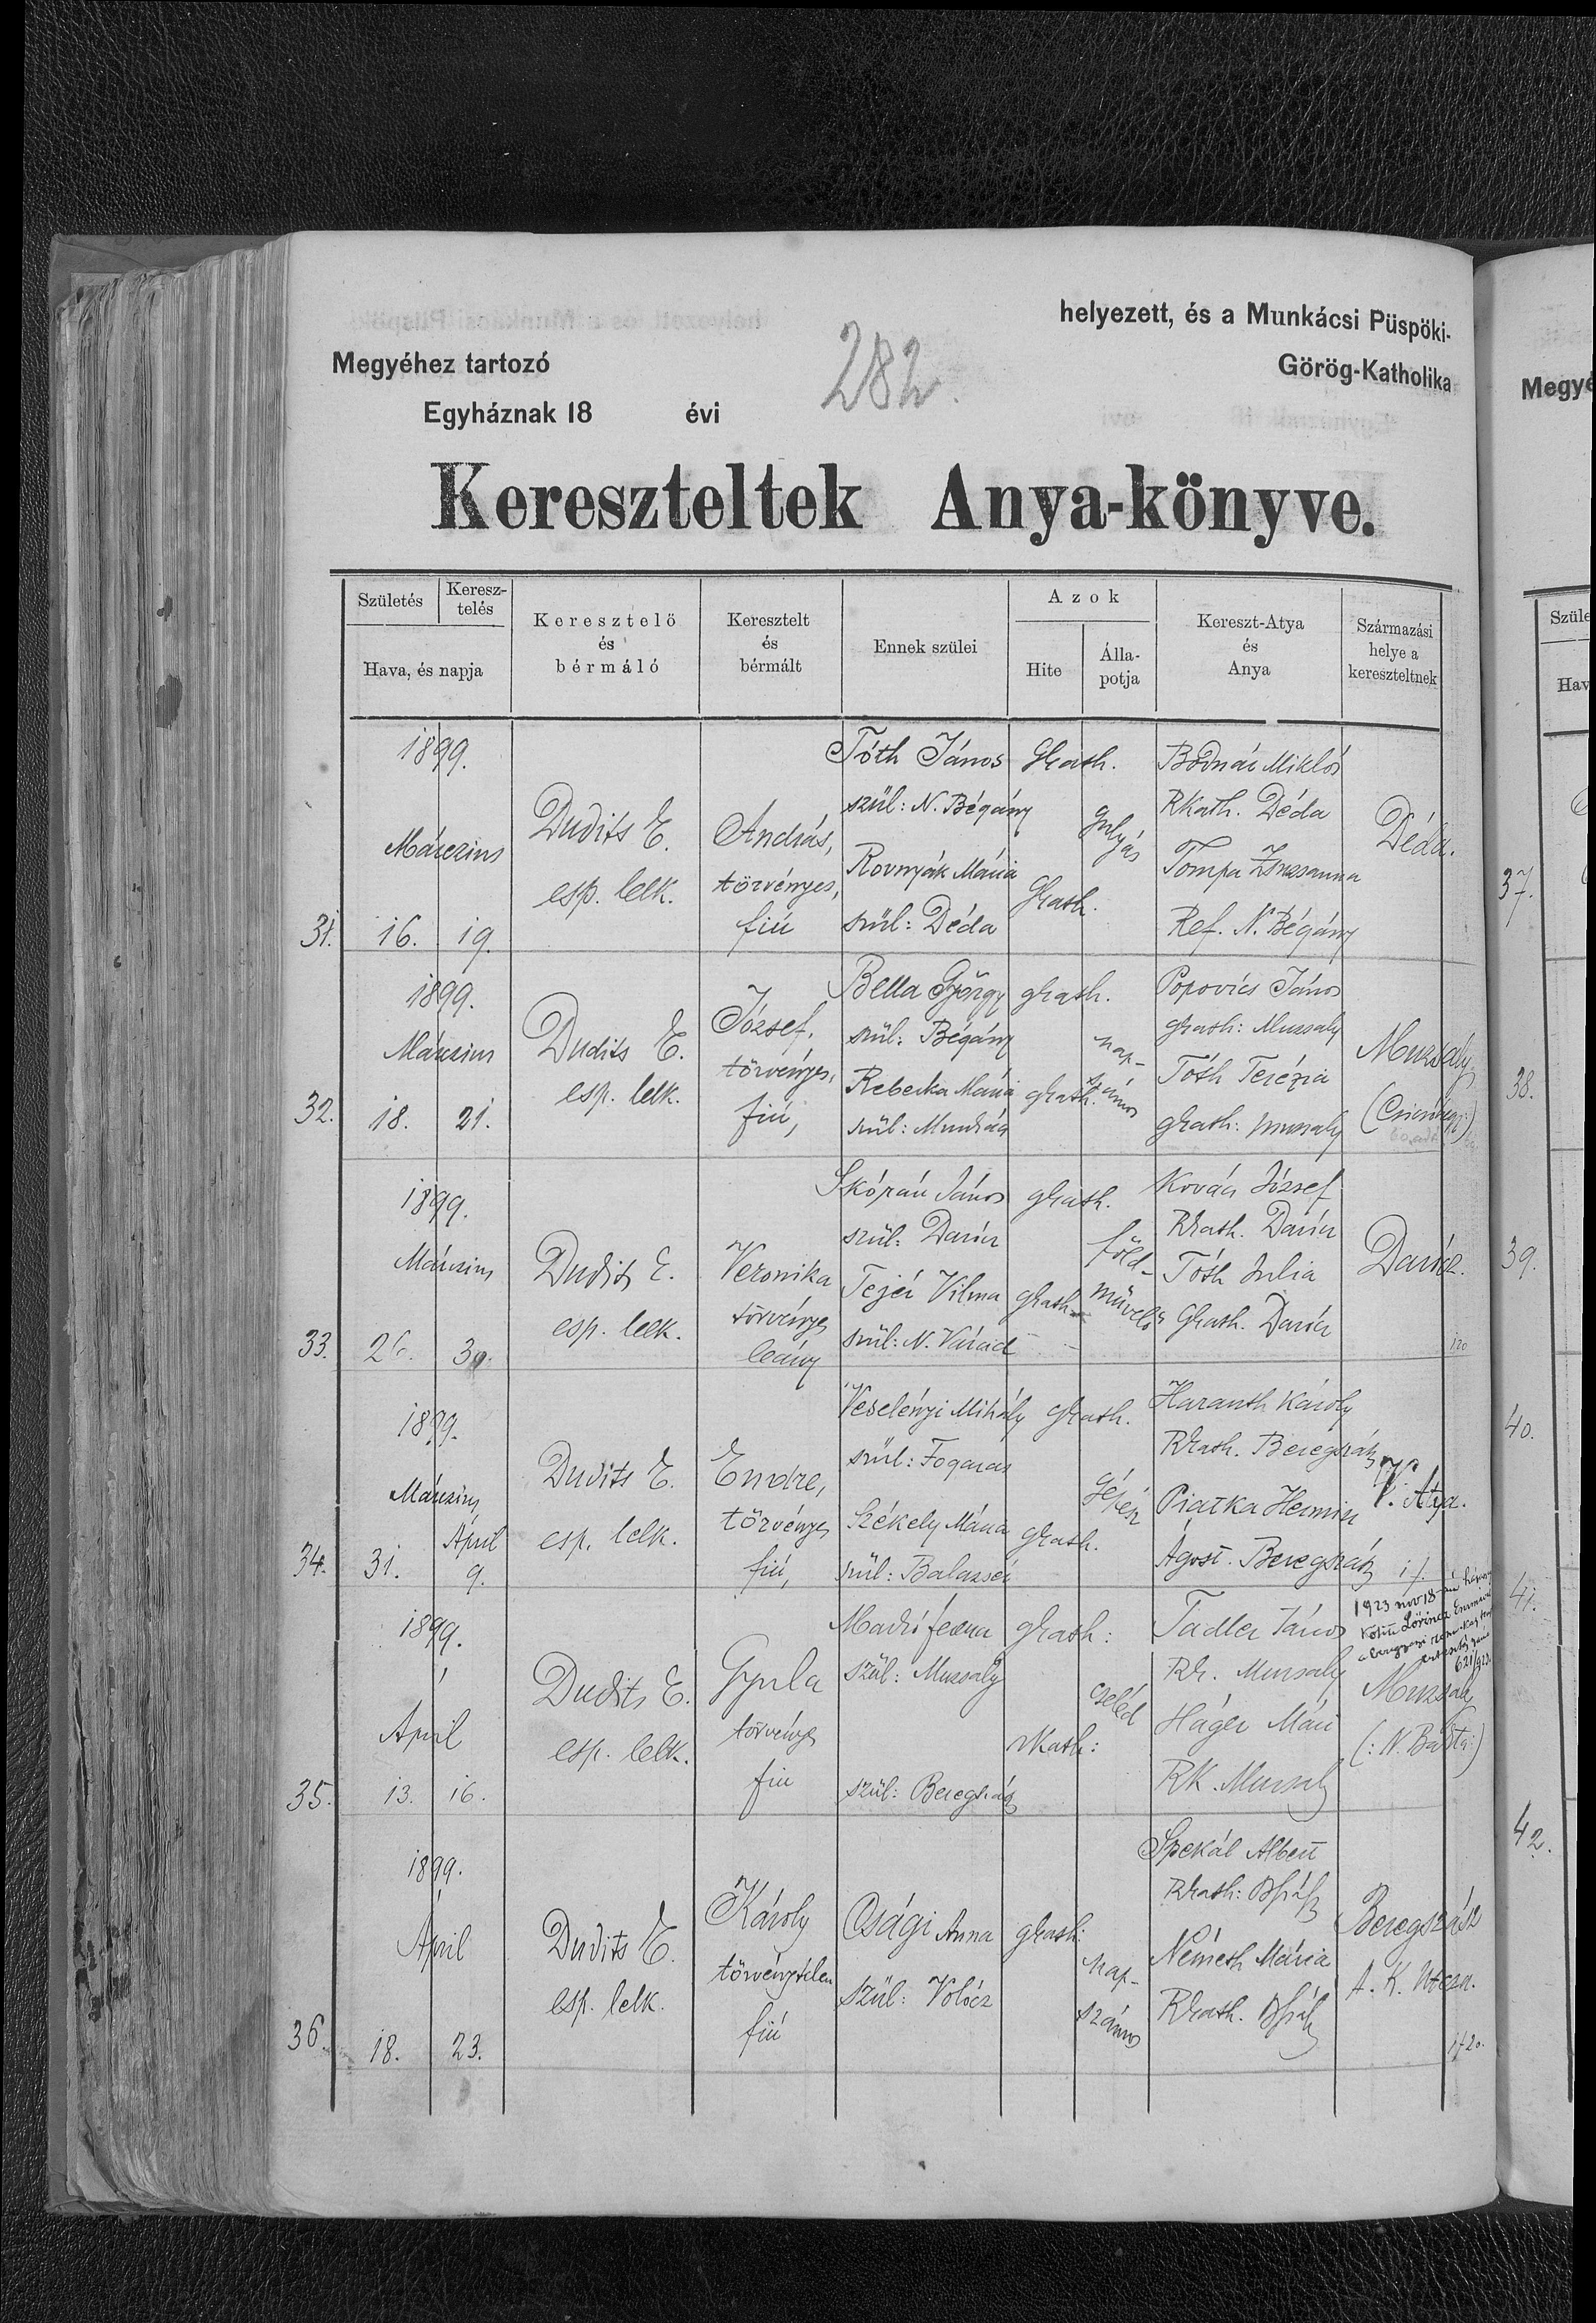 helyezett, és a Munkácsi Püspöki-
Megyéhez tartozó
Görög-Katholika
Egyháznak 18 évi
282.
Kereszteltek Anya-könyve.
Születés
Keresz-
telés
Hava, és napja
Keresztelő
és
bérmáló
Keresztelt
és
bérmált
Ennek szülei
Azok
Hite
Álla-
potja
Kereszt-Atya
és
Anya
Származási
helye a
kereszteltnek
31.
1899.
Márczius
16. 19.
Dudits E.
esp. lelk.
András,
törvényes,
fiú
Tóth János
szül: N. Bégány
Rovnyák Mária
szül: Déda
Gkath.
Gkath.
gulyás
Bodnár Miklós
Rkath. Déda
Tompa Zsuzsanna
Ref. N. Bégány
Déda.
32.
1899.
Márczius
18. 21.
Dudits E.
esp. lelk.
József,
törvényes,
fiú,
Bella György
szül: Bégány
Rebecka Mária
szül: Munkács
gkath.
gkath.
nap-
számos
Popovics János
gkath: Muzsaly
Tóth Terézia
gkath: Muzsaly
Muzsaly
33.
1899.
Márczius
26. 30.
Dudits E.
esp. lelk.
Veronika
törvényes
leány
Skópán János
szül: Darócz
Fejér Vilma
szül: N. Várad
gkath.
gkath.
föld-
művelő
Kovács József
Rkath. Darócz
Tóth Julia
Gkath. Darócz
Darócz.
34.
1899.
Márczius
April
31. 9.
Dudits E.
esp. lelk.
Endre,
törvényes
fiú,
Veselényi Mihály
szül: Fogaras
Székely Mária
szül: Balazsér
gkath.
gkath.
gépész
Haranth Károly
Rkath. Beregszász
Piatka Hermin
Ágost. Beregszász
V. Atya.
35.
1899.
April
13. 16.
Dudits E.
esp. lelk.
Gyula
törvényes
fiú
szül: Muzsaly
szül: Beregszász
gkath:
rkath:
cseléd
Tadler János
Rk. Muzsaly
Háger Mári
RK. Muzsaly
1923 nov 18-án
Lőrincz
621/923.
Muzsaly
36.
1899.
April
18. 23.
Dudits E.
esp. lelk.
Károly
törvénytelen
fiú
Csági Anna
szül: Volócz
gkath:
nap-
számos
Spekál Albert
Rkath: Bszász
Németh Mária
Rkath. Bszász
Beregszász
A. K. Utcza.
Megyé
Szüle
Hav
37.
38.
39.
40.
41.
42.